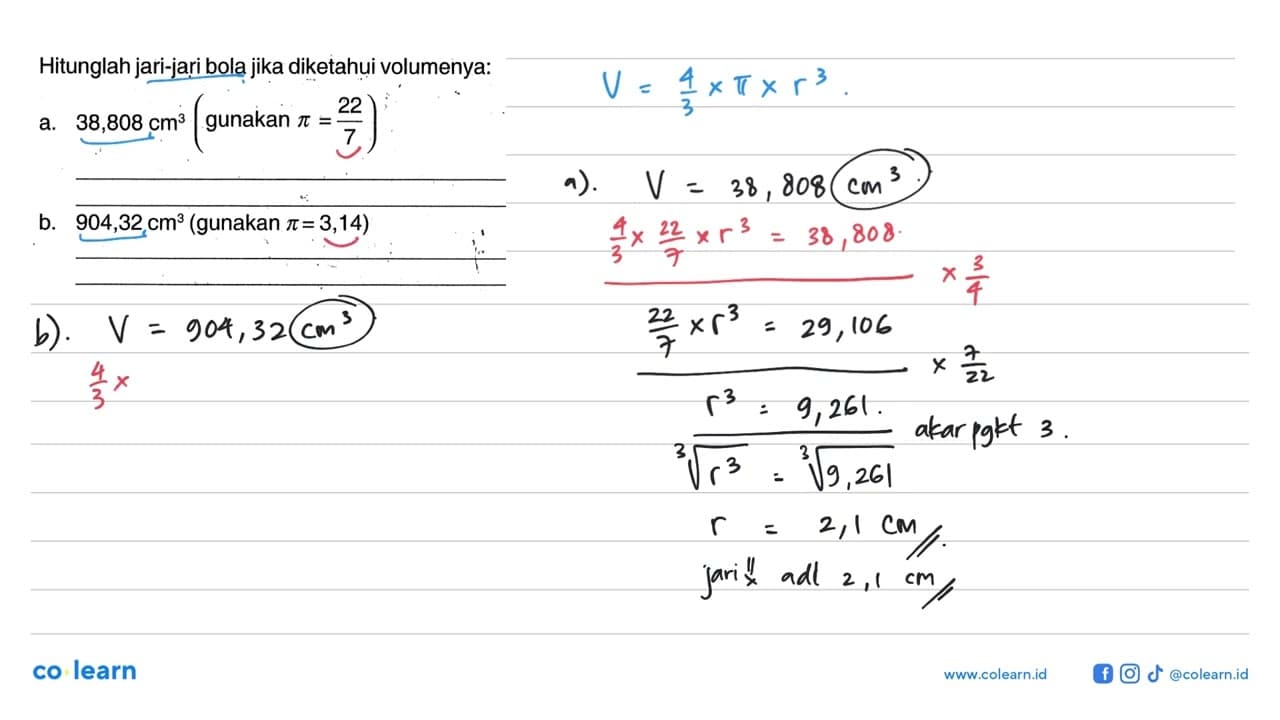 Hitunglah jari-jari bola jika diketahui volumenya:
a. 38,808 cm³ (gunakan π = 22/7)
b. 904,32 cm³ (gunakan π = 3,14)
b). V = 904,32 cm³
4/3 ×
V = 4/3 × π × r³.
a). V = 38,808 cm³.
4/3 × 22/7 × r³ = 38,808.
× 3/4
22/7 × r³ = 29,106
× 7/22
r³ = 9,261.
akar pgkt 3.
³√r³ = ³√9,261
r = 2,1 cm
jari" adl 2,1 cm
co learn
www.colearn.id
@colearn.id